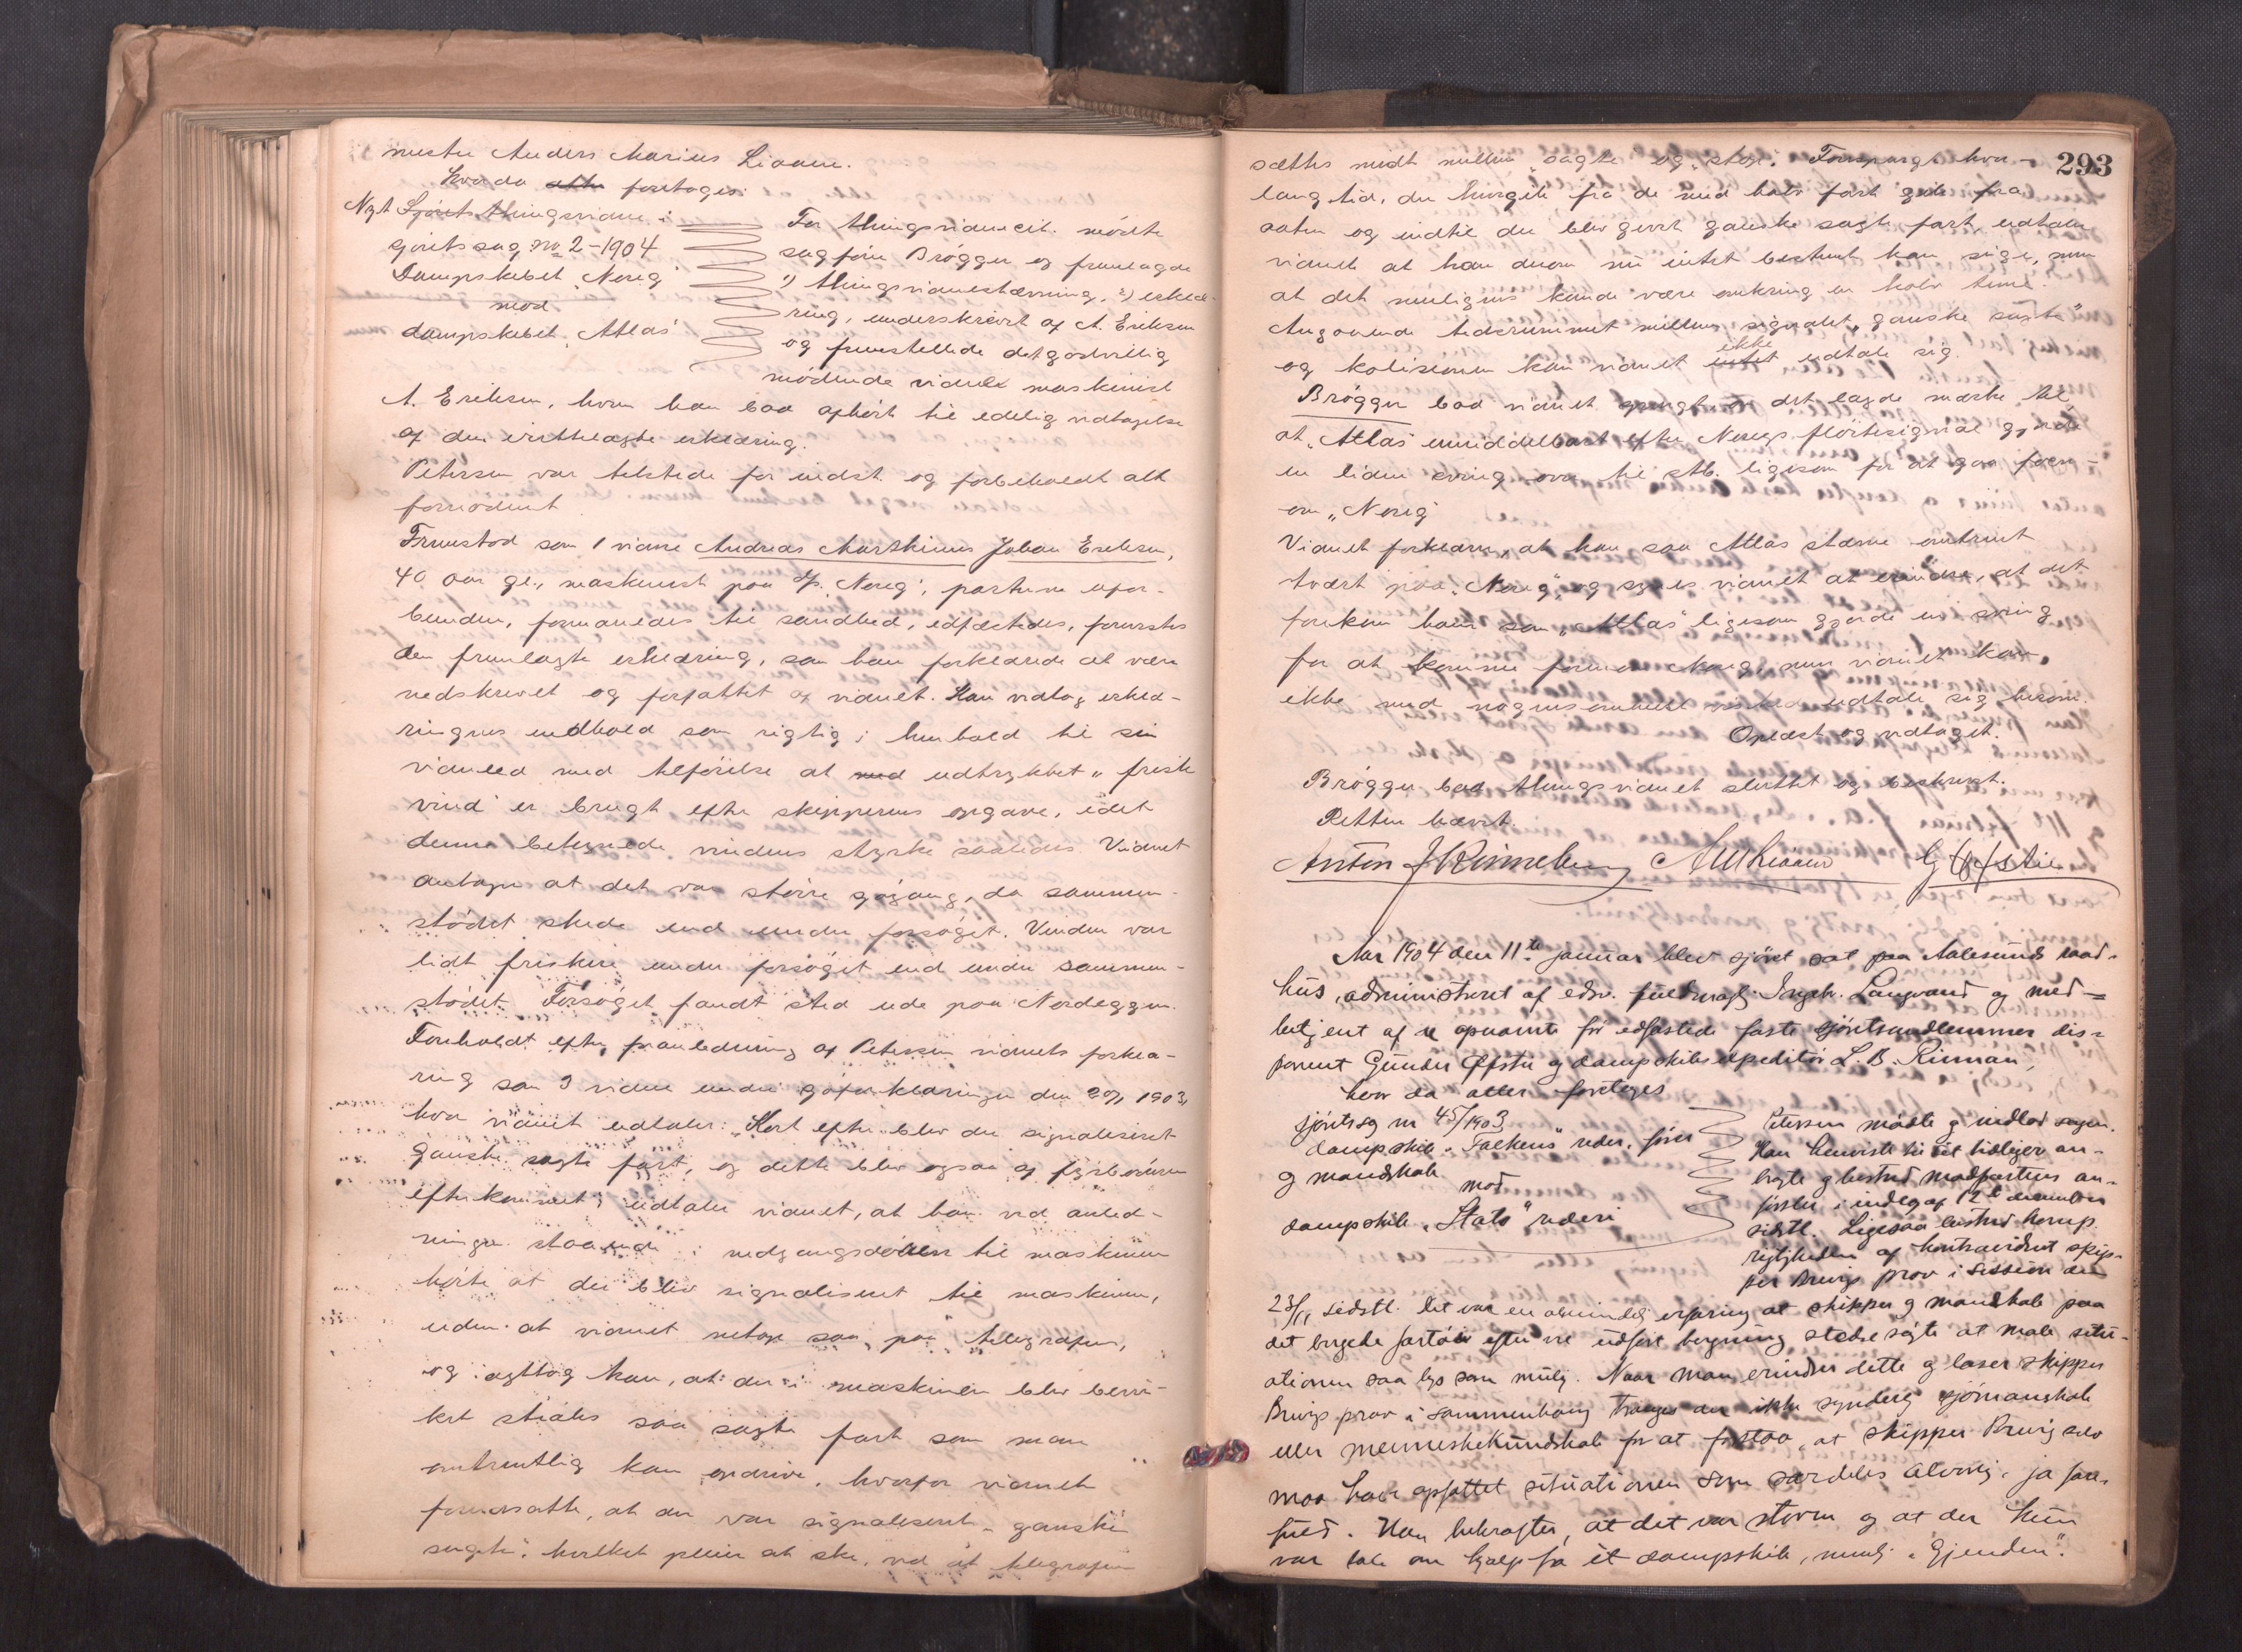 mester Anders Marius Liaaen.
Hvor da foretoges:
Nyt Sjörets thingsvidne i
sjöretssag no 2 - 1904
Dampskibet "Noreg"
mod
dampskibet "Atlas"
For thingsvidnecit. mödte
sagförer Brögger og fremlagde
1) thingsvidnestævning, 2) erklæ-
ring, underskrevet af A. Eriksen
og fremstillede det godvillig
mödende vidne maskinist
A. Eriksen, hvem han bad afhört til edelig vedtagelse
af den irettelagte erklæring.
Petersen var tilstede for indst. og forbeholdt alt
fornödent
Fremstod som 1 vidne Andreas Marthinus Johan Eriksen,
40 aar gl., maskinist paa D/s "Noreg", parterne ufor-
bunden, formanedes til sandhed, edfæstedes, forevistes
den fremlagte erklæring, som han forklarede at være
nedskrevet og forfattet af vidnet. Han vedtog erklæ-
ringens indhold som rigtig i henhold til sin
vidneed med tilföielse at udtrykket "frisk
vind" er brugt efter skipperens opgave, idet
denne betegnede vindens styrke saaledes. Vidnet
antager at det var större sjögang, da sammen-
stödet skede end under forsöget. Vinden var
lidt friskere under forsöget end under sammen-
stödet. Forsöget fandt sted ude paa Nordeggen.
Foreholdt efter foranledning af Petersen vidnets forkla-
ring som 3 vidne under söforklaringen den 1903,
hvor vidnet udtaler: "Kort efter blev der signaliseret
ganske sagte fart, og dette blev ogsaa af fyrböteren
efterkommet", udtaler vidnet, at han ved anled-
ningen staaende i nedgangsdören til maskinen
hörte at der blev signaliseret til maskinen,
uden at vidnet netop saa paa telegrafen,
og iagttog han, at der i maskinen blev bevir-
ket straks saa sagte fart som man
omtrentlig kan opdrive, hvorfor vidnet
forudsatte, at der var signaliseret "ganske
sagte", hvilket pleier at ske, ved at telegrafen
293
sættes midt mellem "sagte" og "stop". Forespurgt hvor-
lang tid, der hengik fra de med halv fart gik fra
saten og indtil der blev givet ganske sagte fart, udtaler
vidnet at han derom nu intet bestemt kan sige, men
at det muligens kunde være omkring en halv time.
Angaaende tidsrummet mellem signalet "ganske sagte"
og kolisionen kan vidnet ikke udtale sig.
Brögger bad vidnet spurgt om det lagde mærke til
at "Atlas" umiddelbart efter Noregs flöitesignal gjorde
en liden sving over til stb. ligesom for at gaa foran-
om "Noreg"
Vidnet forklarer, at han saa Atlas stævne omtrent
tvært paa "Noreg", og synes vidnet at erindre, at det
forekom ham som "Atlas" ligesom gjorde en sving
for at komme foranom Noreg, men vidnet kan
ikke med nogensomhelst vished udtale sig herom.
Oplæst og vedtaget.
Brögger bad thingsvidnet sluttet og beskrevet.
Retten hævet.
Anton J Rinneberg A M Liaaen G Öfstie
Aar 1904 den 11te januar blev sjöret sat paa Aalesunds raad-
hus, administreret af edsv. fuldmægt. Ingebr. Langvand og med-
betjent af de opnævnte för edfæstede faste sjöretsmedlemmer dis-
ponent Gunder Öfstie og dampskibsexpeditör L. B. Rinnan,
hvor da atter foretoges
sjöretssag nr 45/1903
dampskib "Falkens" rederi, förer
og mandskab
mod
dampskib "Stats" rederi
Petersen mödte og indlod sagen.
Han henviste til sit tidligere an-
bragte og bestred modpartens an-
försler i indlæg af 12te december
sidstl. Ligesaa bestred komp.
rigtigheden af kontravidnet skip-
per Brevigs prov i session den
23/11 sidstl. Det var en almindelig erfaring at skipper og mandskab paa
det bergede fartöi efter vel udfört bergning stedse sögte at male situ-
ationen saa lys som mulig. Naar man erindrer dette og læser skipper
Brevigs prov i sammenhæng trænges der ikke synderlig sjömandskab
eller menneskekundskab for at forstaa, at skipper Brevig selv
maa have opfattet situationen som særdeles alvorlig, ja fare-
fuld. Han bekræfter, at det var storm og at der kun
var tale om hjælp fra ét dampskib, nemlig "Gjenden".